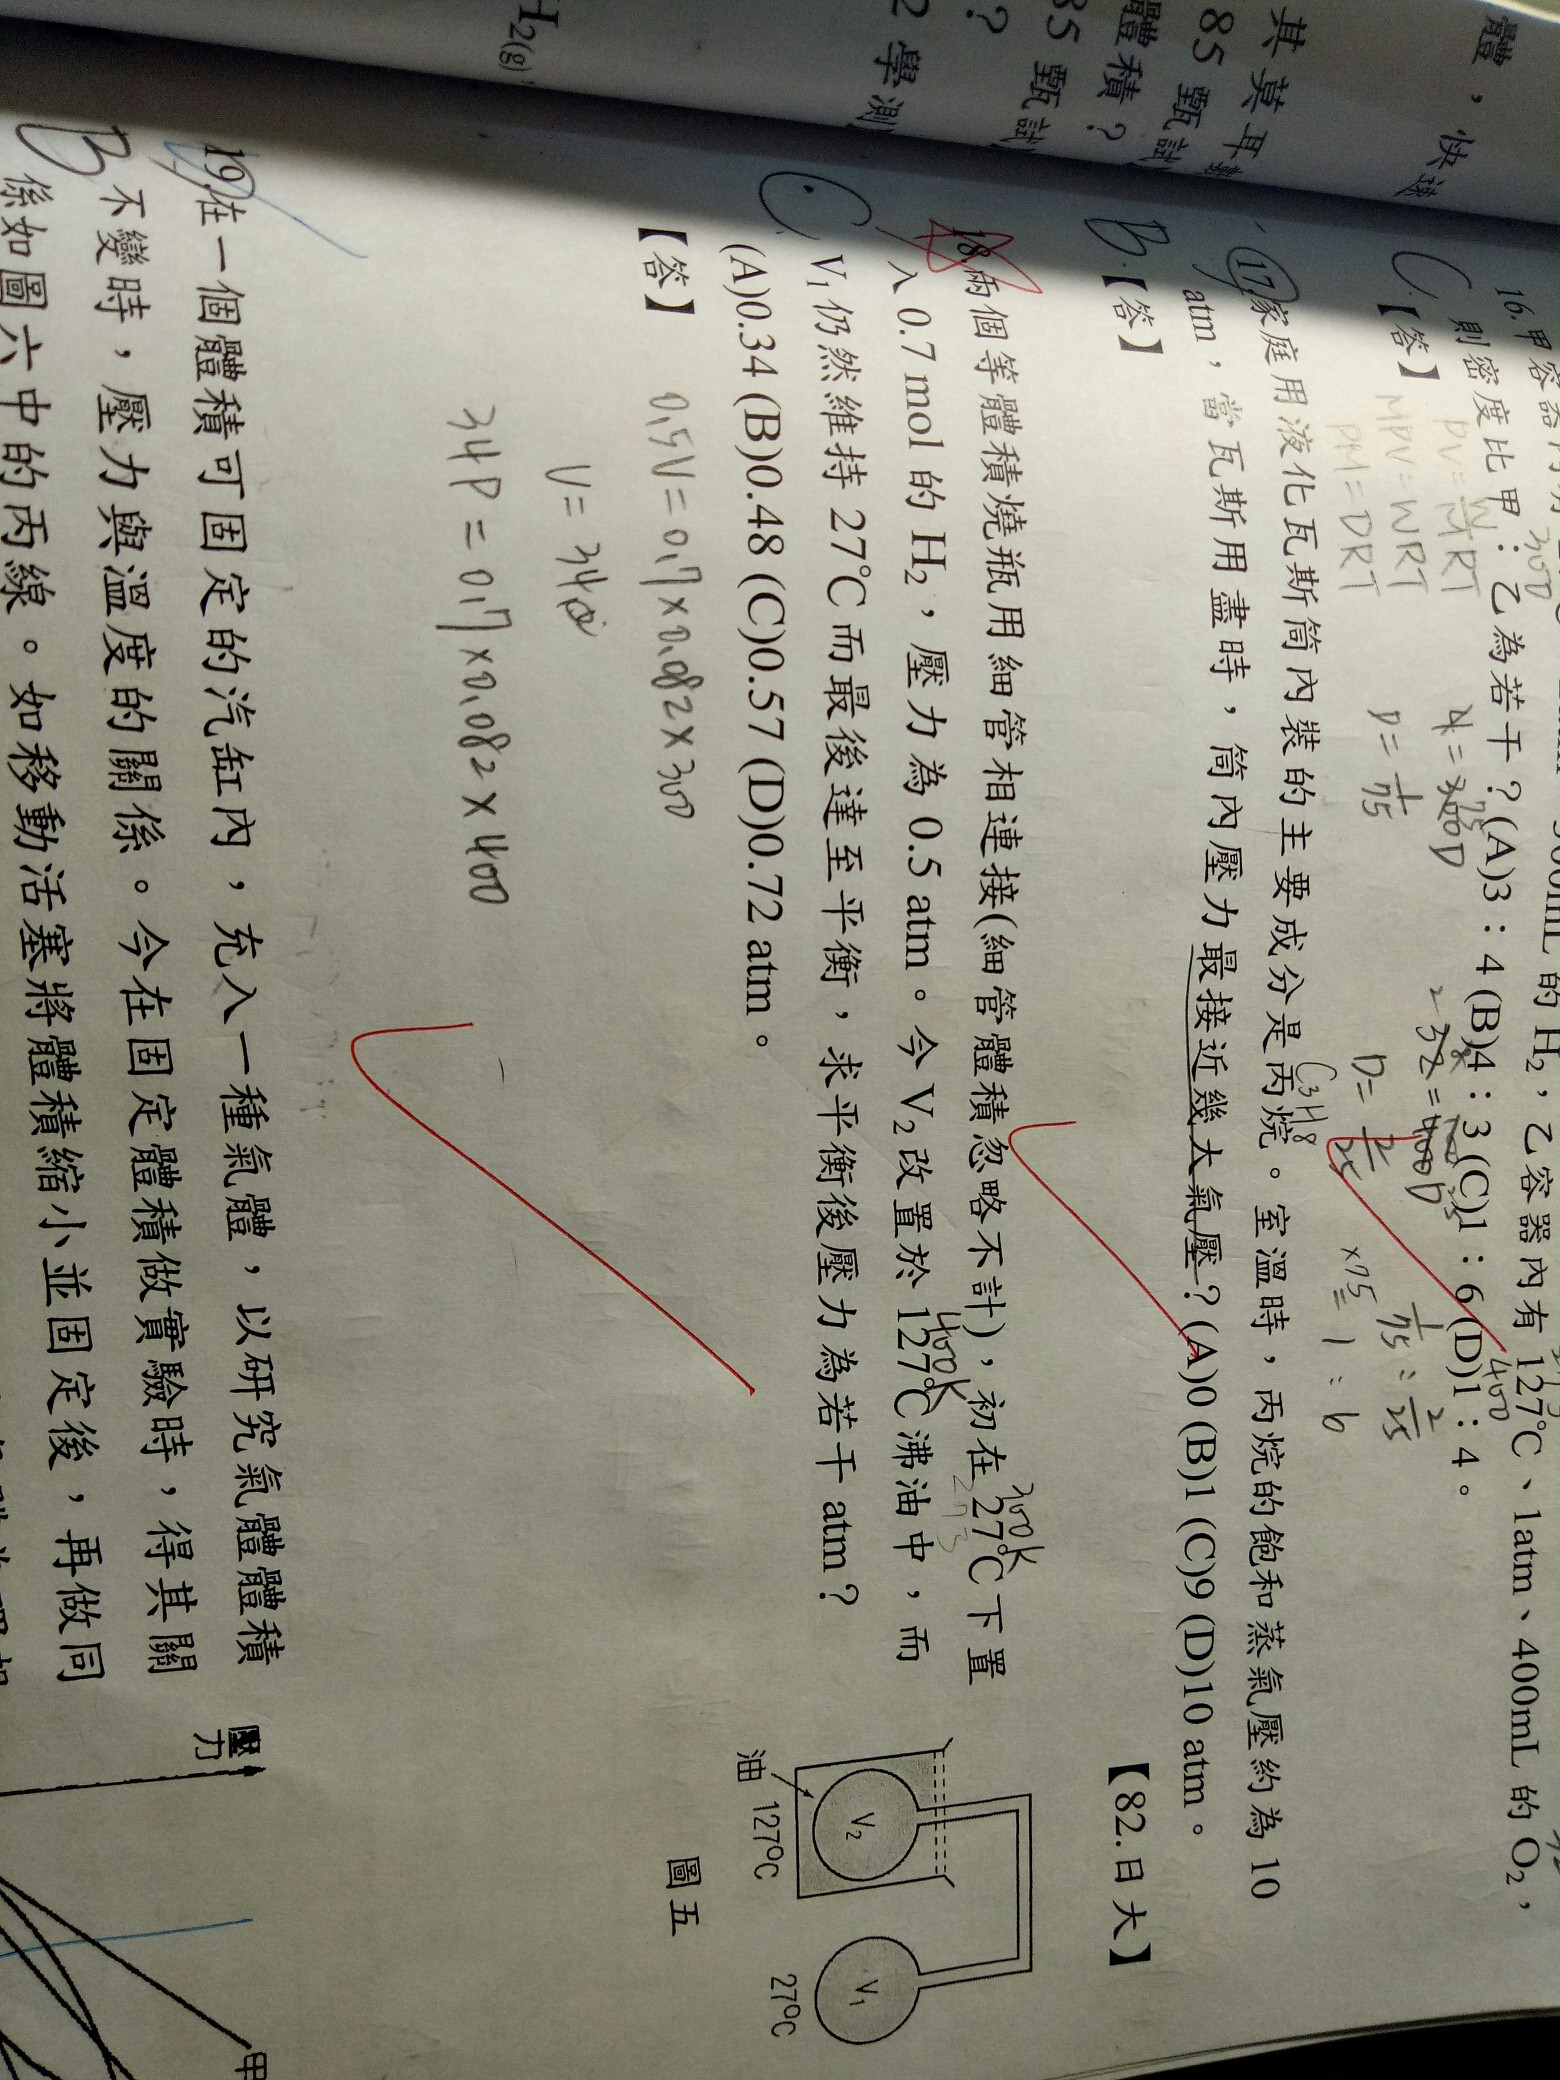 體，快速
其莫耳數
85 甄試
體積？
85 甄試
？
2 學測
H₂(g)
500mL 的 H₂，乙容器內有 127℃、1atm、400mL 的 O₂，
則密度比甲：乙為若干？(A)3：4 (B)4：3 (C)1：6 (D)1：4。
300
400
C.【答】
PV=W/M RT
MPV=WRT
PM=DRT
D=1/75
D=2/25
1/75：2/25
×75=1：6
17.家庭用液化瓦斯筒內裝的主要成分是丙烷。室溫時，丙烷的飽和蒸氣壓約為 10
C3H8
atm，當瓦斯用盡時，筒內壓力最接近幾大氣壓？(A)0 (B)1 (C)9 (D)10 atm。
B.【答】
【82.日大】
18.兩個等體積燒瓶用細管相連接(細管體積忽略不計)，初在 27℃下置
300K
入 0.7 mol 的 H₂，壓力為 0.5 atm。今 V₂改置於 127℃沸油中，而
400K
V₁仍然維持 27℃而最後達至平衡，求平衡後壓力為若干 atm？
C.
(A)0.34 (B)0.48 (C)0.57 (D)0.72 atm。
【答】
0.5V=0.7×0.082×300
V=34
34P=0.7×0.082×400
油
127⁰C
V₂
V₁
27⁰C
圖五
19.在一個體積可固定的汽缸內，充入一種氣體，以研究氣體體積
B
不變時，壓力與溫度的關係。今在固定體積做實驗時，得其關
係如圖六中的丙線。如移動活塞將體積縮小並固定後，再做同
壓力
甲